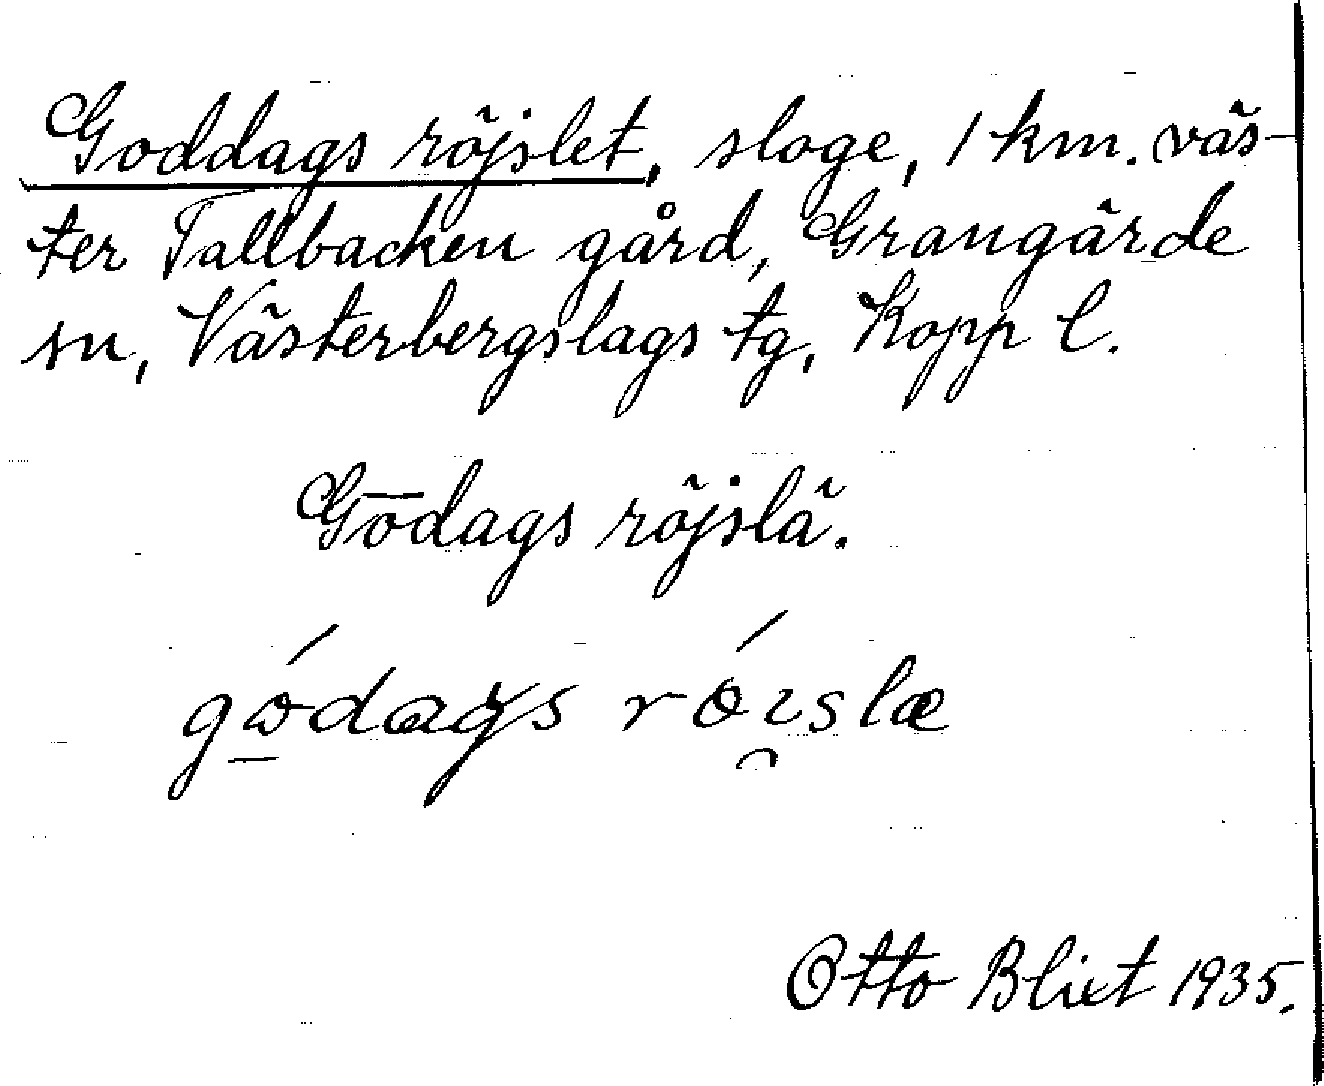 Goddags röjslet, sloge, 1 km. väs-
ter Tallbacken gård, Grangärde
sn, Västerbergslags tg, Kopp l.
Gōdags röjslä.
Otto Blixt 1935.